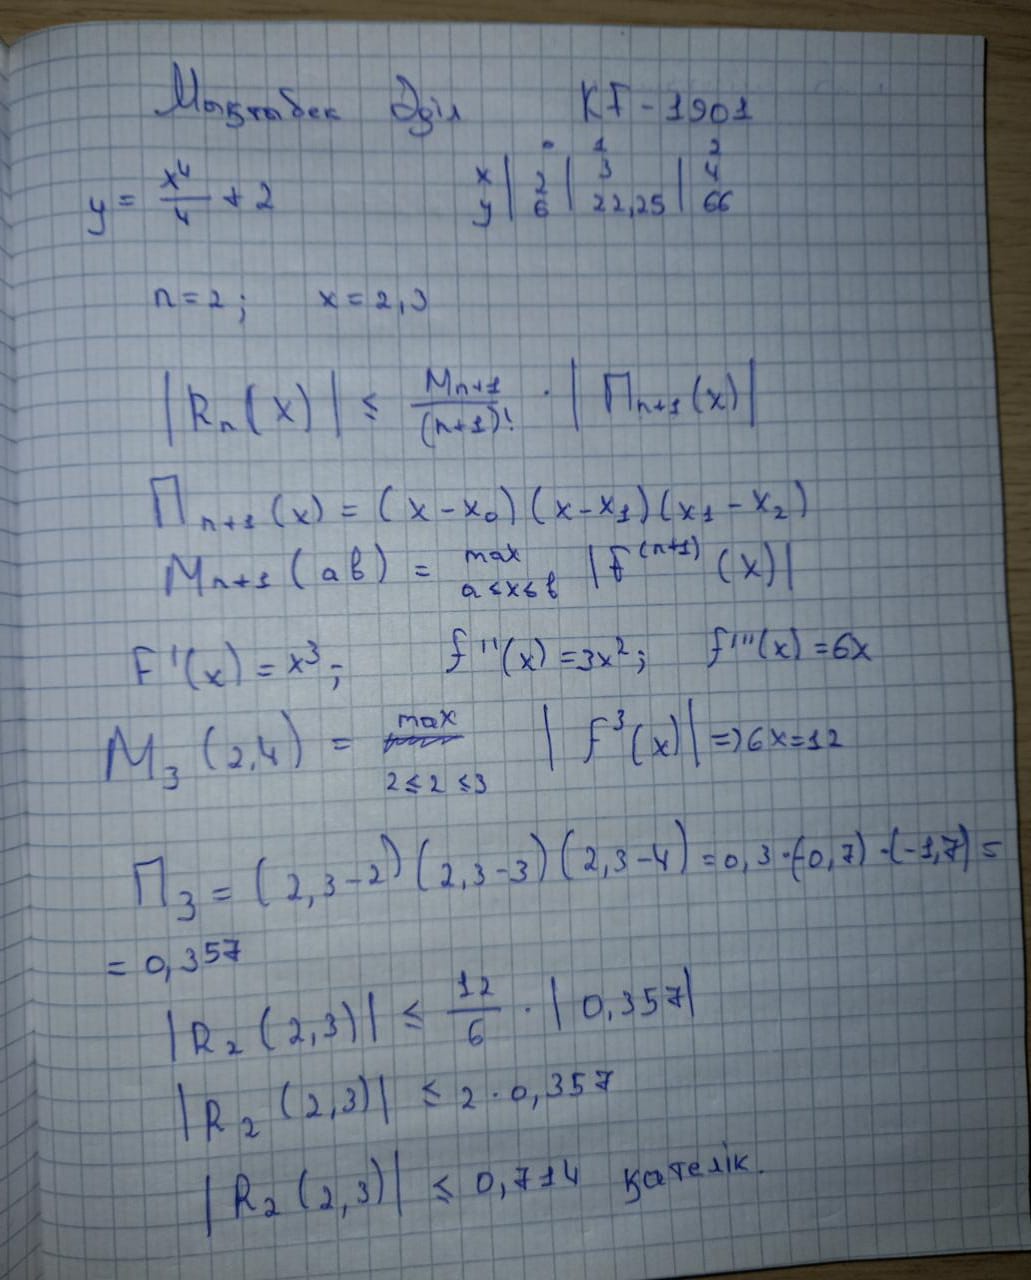 Мықтыбек Әділ КГ-1901
0 1 2
y = x⁴/4 + 2 x | 2 | 3 | 4
y | 6 | 22,25 | 66
n=2; x=2,3
|Rₙ(x)| ≤ Mₙ₊₁/(n+1)! · |Πₙ₊₁(x)|
Πₙ₊₁(x) = (x-x₀)(x-x₁)(x₁-x₂)
Mₙ₊₁(aв) = max a≤x≤в |f⁽ⁿ⁺¹⁾(x)|
F'(x) = x³; f''(x) =3x²; f'''(x) =6x
M₃(2,4) = max 2≤2≤3 |f³(x)| =>6x=12
Π₃ = (2,3-2)(2,3-3)(2,3-4) = 0,3·(-0,7)·(-1,7) =
= 0,357
|R₂(2,3)| ≤ 12/6 · |0,357|
|R₂(2,3)| ≤ 2·0,357
|R₂(2,3)| ≤ 0,714 қателік.